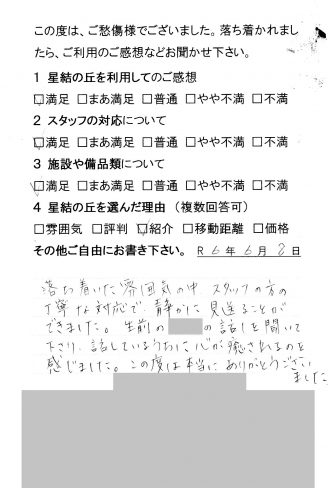 この度は、ご愁傷様でございました。落ち着かれまし
たら、ご利用のご感想などお聞かせ下さい。
1 星結の丘を利用してのご感想
☑満足 □まあ満足 □普通 □やや不満 □不満
2 スタッフの対応について
☑満足 □まあ満足 □普通 □やや不満 □不満
3 施設や備品類について
☑満足 □まあ満足 □普通 □やや不満 □不満
4 星結の丘を選んだ理由（複数回答可）
□雰囲気 □評判 ☑紹介 □移動距離 □価格
その他ご自由にお書き下さい。 R6年6月8日
落ち着いた雰囲気の中 スタッフの方の
丁寧な対応で、静かに見送ることが
できました。生前の の話しを聞いて
下さり、話しているうちに心が癒されるのを
感じました。この度は本当にありがとうござい
ました。